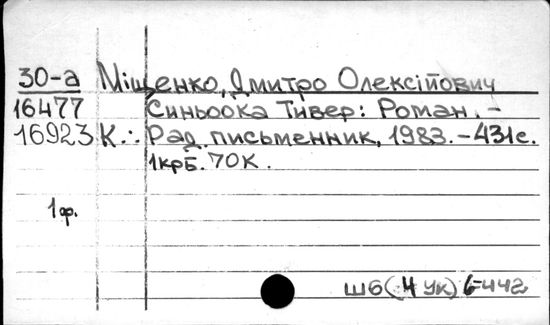 30-а Міщенко, Дмитро Олексійович
16477 Синьоока Тивер: Роман. -
16923 К.: Рад. письменник, 1983. - 431с.
1крб. 70К.
1ф.
Ш6(4 Ук) 6-442